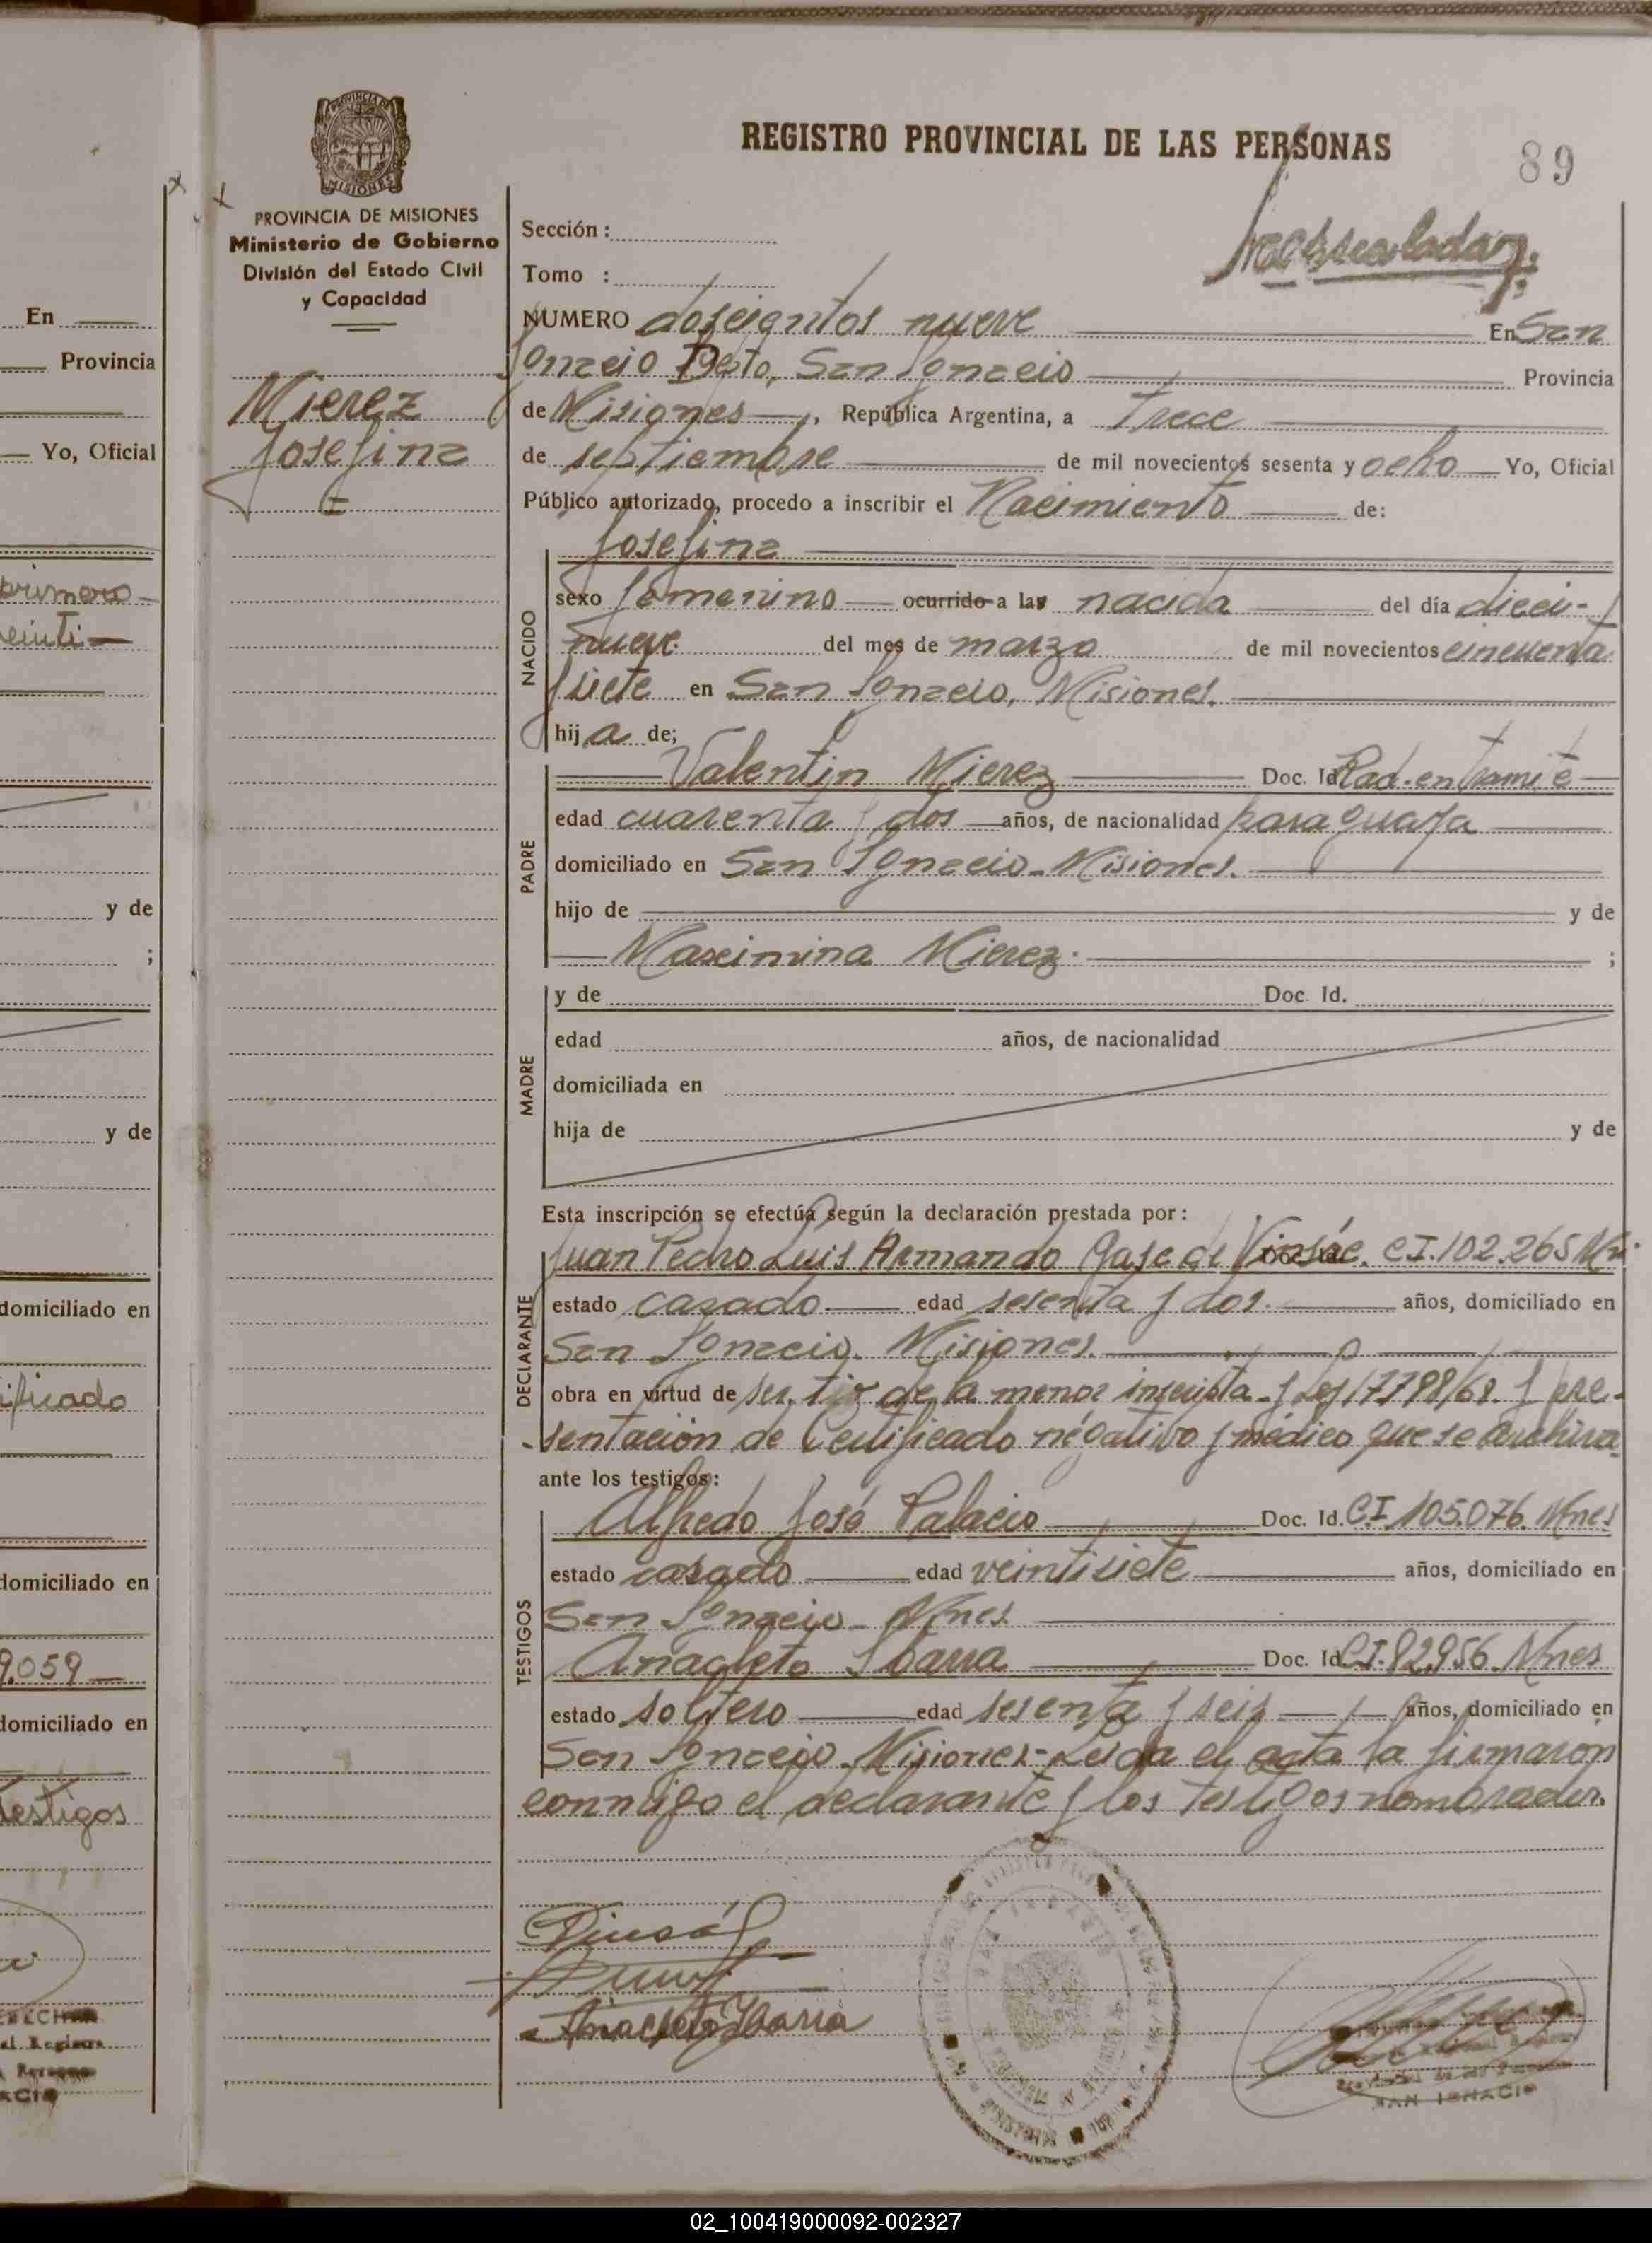 REGISTRO PROVINCIAL DE LAS PERSONAS
89
PROVINCIA DE MISIONES
MISIONES
PROVINCIA DE MISIONES
Ministerio de Gobierno
División del Estado Civil
y Capacidad
Sección :
Tomo :
NUMERO doscientos nueve En San
Ignacio Dpto, San Ignacio Provincia
de Misiones, República Argentina, a trece
de septiembre de mil novecientos sesenta y ocho Yo, Oficial
Público autorizado, procedo a inscribir el Nacimiento de:
Mierez
Josefina
Josefina
NACIDO
sexo femenino ocurrido a las nacida del día dieci-
nueve del mes de marzo de mil novecientos cincuenta
y siete en San Ignacio, Misiones.
hija de;
PADRE
Valentin Mierez Doc. Id Rad. en tramite
edad cuarenta y dos años, de nacionalidad paraguaya
domiciliado en San Ignacio - Misiones.
hijo de y de
Maximina Mierez ;
MADRE
y de Doc. Id.
edad años, de nacionalidad
domiciliada en
hija de y de
Esta inscripción se efectúa según la declaración prestada por:
DECLARANTE
Juan Pedro Luis Armando de CI. 102.265
estado casado edad sesenta y dos. años, domiciliado en
San Ignacio. Misiones.
obra en virtud de ser tio de la menor inscripta y Ley 17798/68. y pre-
sentación de Certificado negativo y médico que se archiva
ante los testigos:
TESTIGOS
Alfredo José Palacio Doc. Id. C.I. 105.076. Mnes
estado casado edad veintisiete años, domiciliado en
San Ignacio - Mnes
Anacleto Ibarra Doc. Id C.I. 82.956. Mnes
estado soltero edad sesenta y seis años, domiciliado en
San Ignacio. Misiones - Leida el acta la firmaron
conmigo el declarante y los testigos nombrados.
Anacleto Ibarra
SAN IGNACIO
En
Provincia
Yo, Oficial
primero
veinti
y de
;
y de
domiciliado en
ificado
domiciliado en
9.059
domiciliado en
testigos
02_100419000092-002327